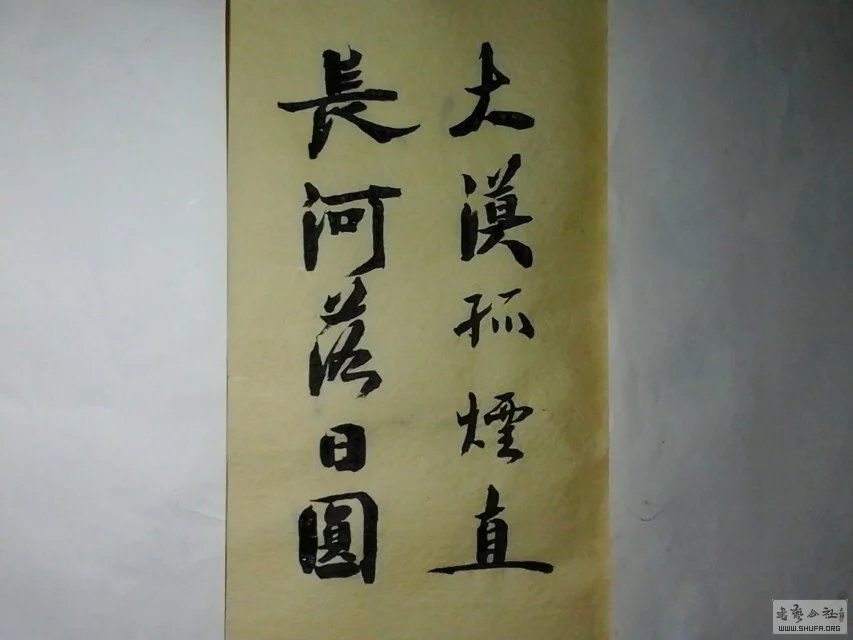 大漠孤煙直
長河落日圓
WWW.SHUFA.ORG